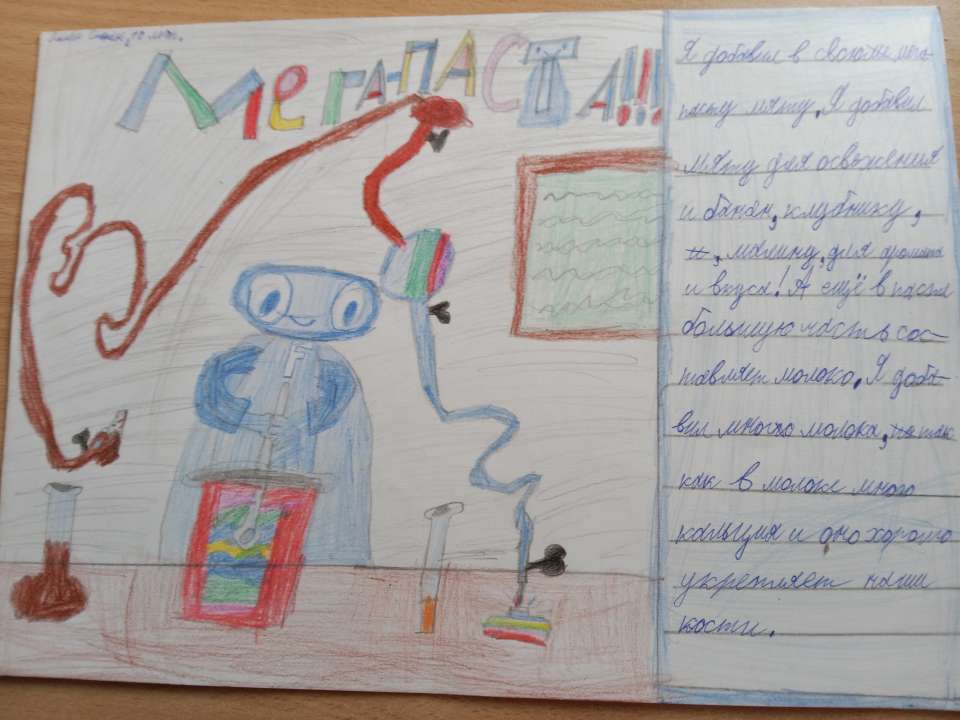 10 лет.
МЕГАПАСТА!!!
Я добавил в свою мега
пасту мяту. Я добавил
мяту для освежения
и банан, клубнику,
и, малину, для аромата
и вкуса! А ещё в пасте
большую часть сос-
тавляет молоко. Я доба-
вил много молока, так
как в молоке много
кальция и оно хорошо
укрепляет наши
кости.